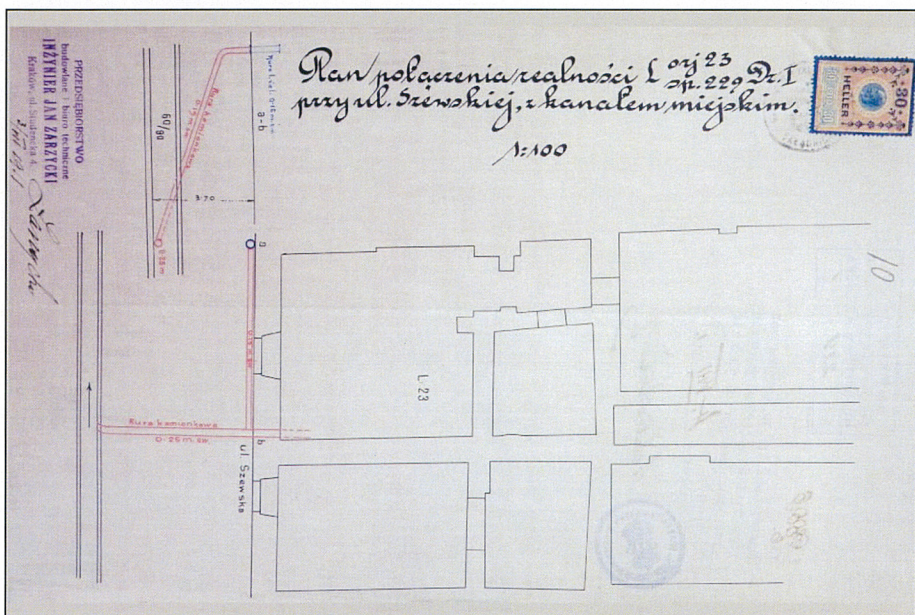 Plan połaczenia realności L orj 23 sp. 229 Dz. I
przy ul. Szewskiej, z kanałem miejskim.
1:100
30
HELLER
PRZEDSIĘBIORSTWO
budowlane i biuro techniczne
INŻYNIER JAN ZARZYCKI
Kraków, ul. Studencka 4.
60/90
Rura kamionkowa
0·15 m św.
a-b
3·70
0·25 m
a
0·15 m św.
L. 23
Rura kamionkowa
0·25 m. św.
b
ul. Szewska
10